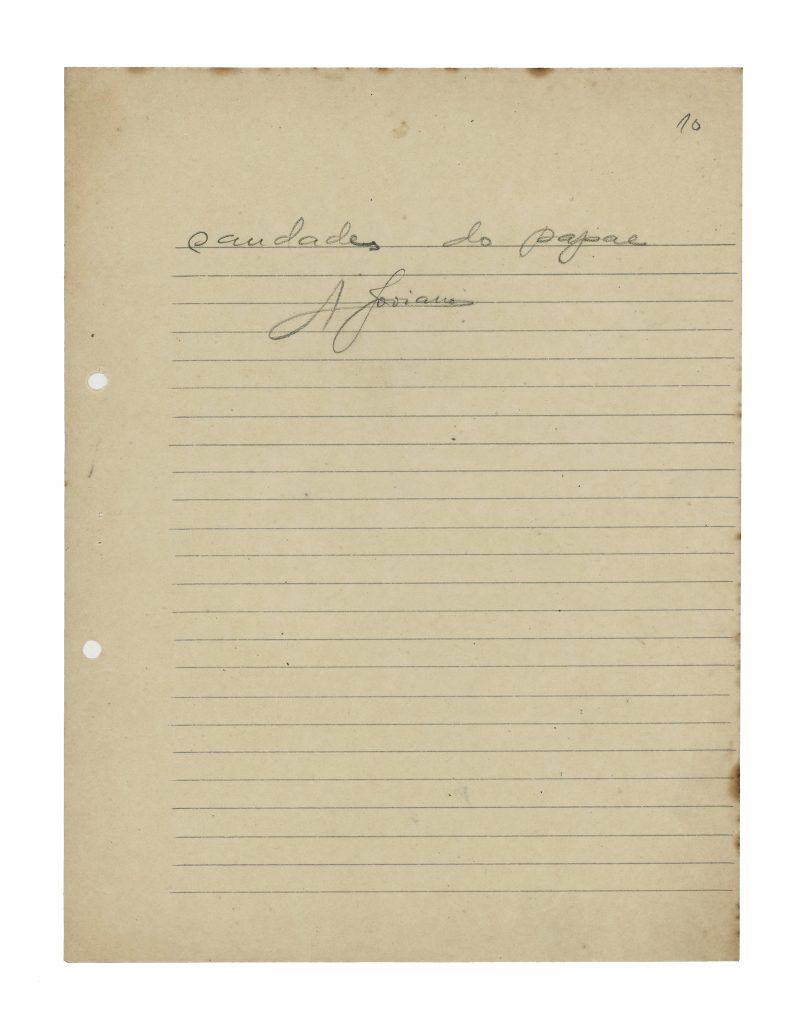 10
saudades do papae
A Joviano